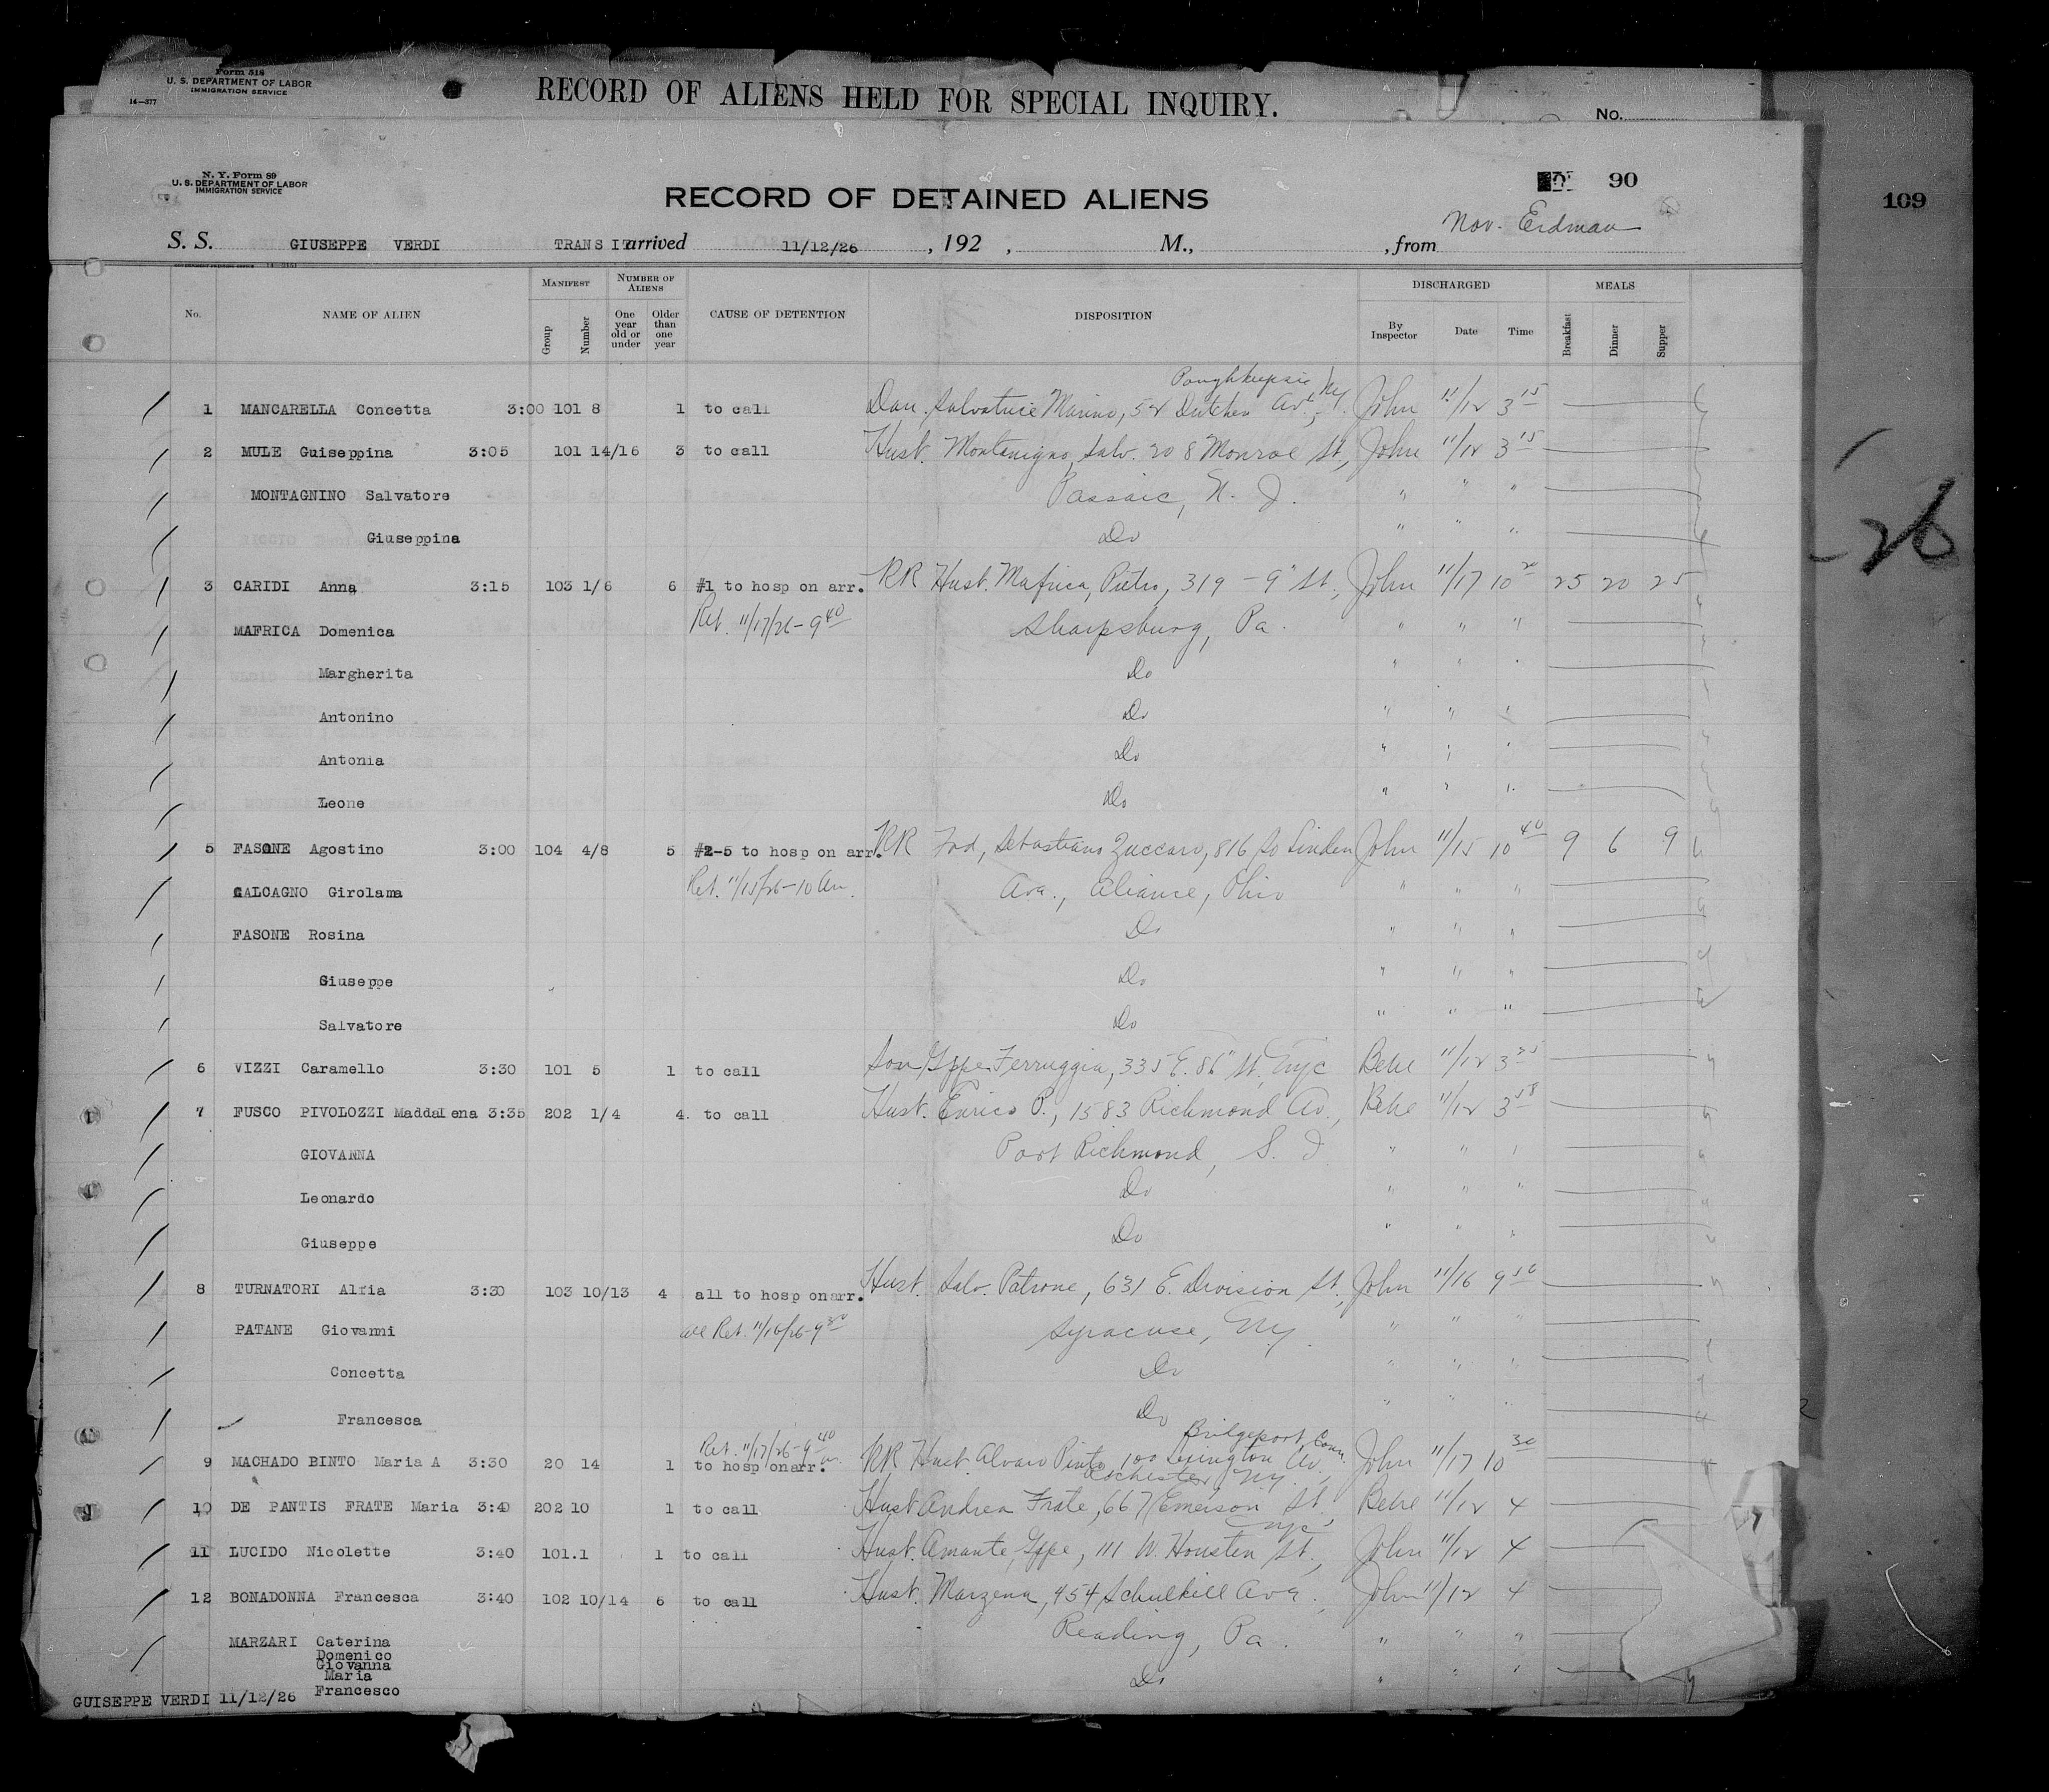 Form 518
U. S. DEPARTMENT OF LABOR
IMMIGRATION SERVICE
14—377
RECORD OF ALIENS HELD FOR SPECIAL INQUIRY.
No.
N. Y. Form 89
U. S. DEPARTMENT OF LABOR
IMMIGRATION SERVICE
RECORD OF DETAINED ALIENS
90
109
Nov. Erdman
S. S. GIUSEPPE VERDI TRANSIT arrived 11/12/26, 192 , M., , from
No. NAME OF ALIEN MANIFEST Group Number NUMBER OF ALIENS One year old or under Older than one year CAUSE OF DETENTION DISPOSITION DISCHARGED By Inspector Date Time MEALS Breakfast Dinner Supper
Poughkeepsie, NY
1 MANCARELLA Concetta 3:00 101 8 1 to call Dau. Salvatrice Marino, 52 Dutches Av., John 11/12 3 15
2 MULE Guiseppina 3:05 101 14/16 3 to call Hust. Montanigno, Salv. 208 Monroe St., John 11/12 3 15
MONTAGNINO Salvatore Passaic, N. J. " " "
Giuseppina Do " " "
3 CARIDI Anna 3:15 103 1/6 6 #1 to hosp on arr. RR Hust. Mafrica, Pietro, 319 - 9" St., John 11/17 10 20 25 20 25
MAFRICA Domenica Ret. 11/17/26 - 9 40 Sharpsburg, Pa. " " "
Margherita Do " " "
Antonino Do " " "
Antonia Do " " "
Leone Do " " "
5 FASONE Agostino 3:00 104 4/8 5 #2-5 to hosp on arr. RR Frd, Sebastiano Zuccaro, 816 So Linden John 11/15 10 40 9 6 9
CALCAGNO Girolama Ret. 11/15/26 - 10 am. Ava., Aliance, Ohio " " "
FASONE Rosina Do " " "
Giuseppe Do " " "
Salvatore Do " " "
6 VIZZI Caramello 3:30 101 5 1 to call Son Gppe Ferruggia, 335 E. 86" St, NYC Behe 11/12 3 35
7 FUSCO PIVOLOZZI Maddalena 3:35 202 1/4 4. to call Hust. Enrico P., 1583 Richmond Av., Behe 11/12 3 58
GIOVANNA Port Richmond, S. I " " "
Leonardo Do " " "
Giuseppe Do " " "
8 TURNATORI Alfia 3:30 103 10/13 4 all to hosp onarr. Hust. Salv. Patrone, 631 E. Division St., John 11/16 9 50
PATANE Giovanni all Ret. 11/16/26 - 9 30 Syracuse, NY. " " "
Concetta Do " " "
Francesca Do " " "
Ret. 11/17/26 - 9 40 am. Bridgeport, Conn.
9 MACHADO BINTO Maria A 3:30 20 14 1 to hosp onarr. RR Hust Alvaro Pinto, 100 Lexington Av., John 11/17 10 30
Rochester, NY.
10 DE PANTIS FRATE Maria 3:40 202 10 1 to call Hust Andrea Frate, 667 Emerson St. Behe 11/12 4
NYC
11 LUCIDO Nicolette 3:40 101.1 1 to call Hust. Amante, Gppe, 111 W. Housten St., John 11/12 4
12 BONADONNA Francesca 3:40 102 10/14 6 to call Hust. Marzena, 454 Schulkill Ave., John 11/12 4
MARZARI Caterina Reading, Pa. " " "
Domenico
Giovanna
Maria Do " " "
Francesco
GUISEPPE VERDI 11/12/26
-26